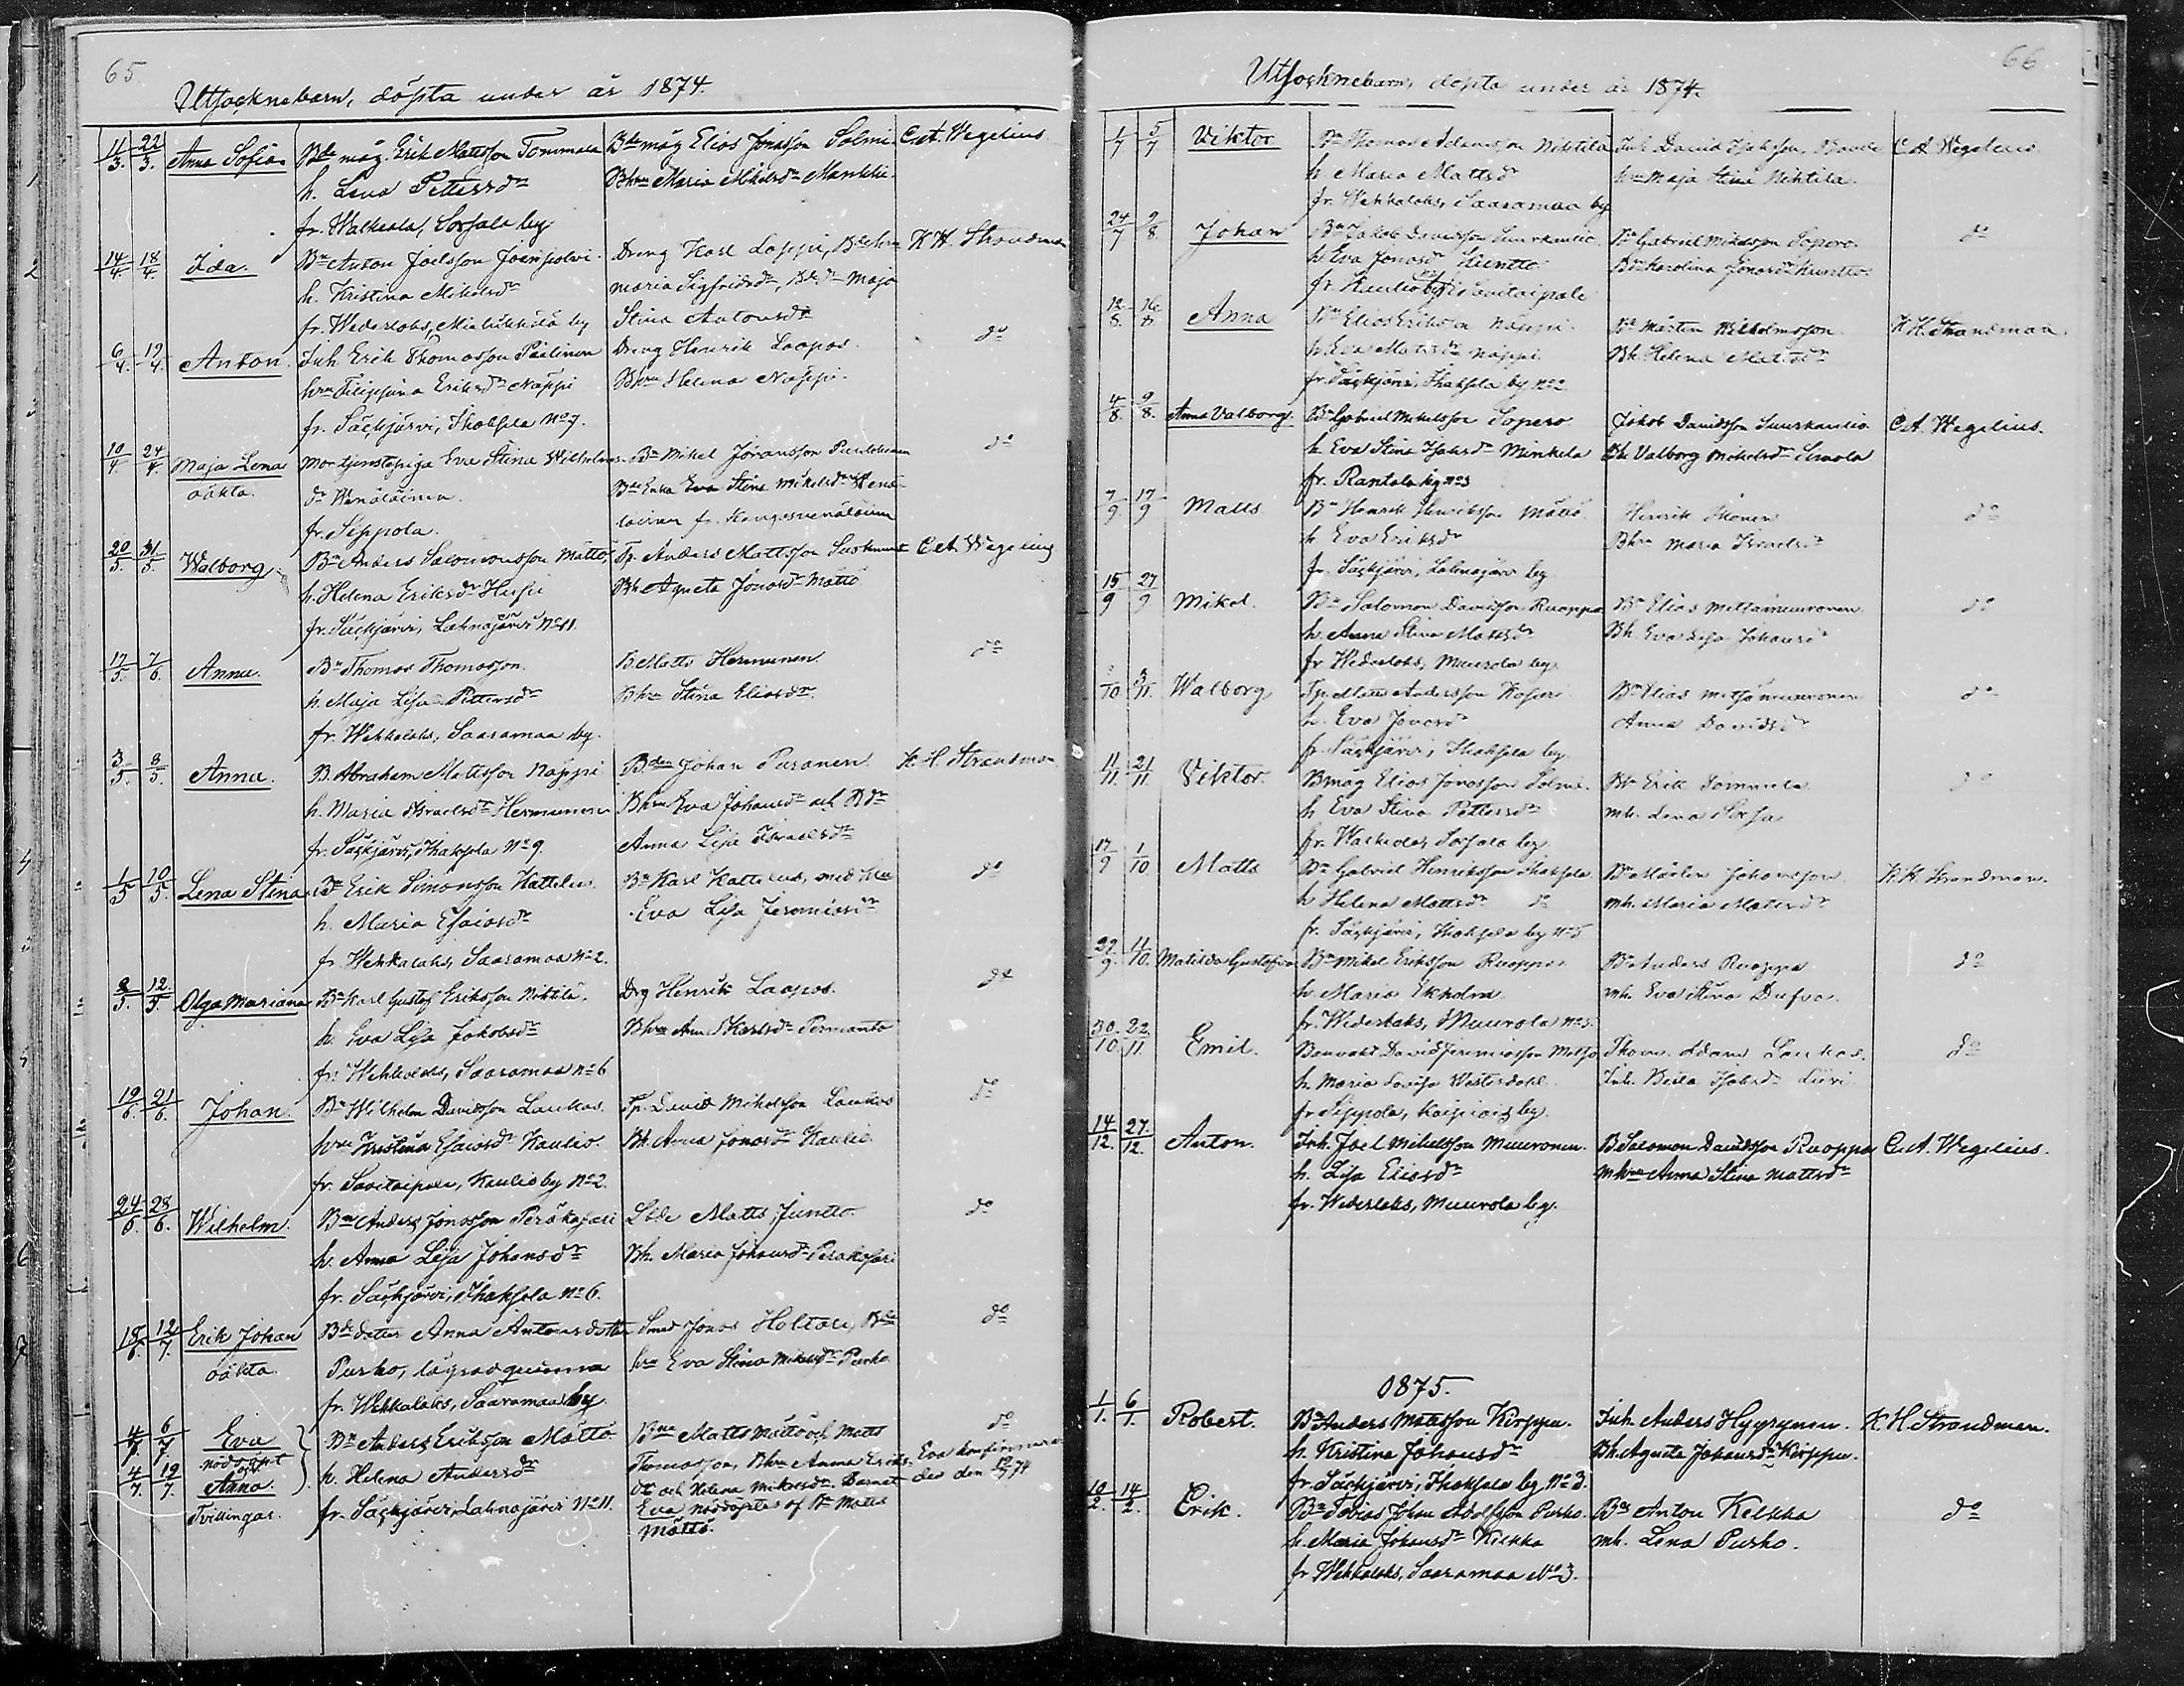 65
Utsocknebarn, döpta under år 1874.
11/3. 22/3. Anna Sofia Bde måg. Erik Mattsson Tommola Bde måg Elias Jonasson Solmi C.A. Wegelius
h. Lena Pettersdr Bhru Maria Mikelsdr
fr. Walkeala, Sorsala by
14/4 18/4 Ida. Bn Anton Joelsson Dreng Karl Lappi, K H Strandman
h. Kristina Mikelsdr Maria Sigfridsdr, Maja
fr. Wederlaks, by Stina Antonsdr
6/4. 19/4. Anton. Inh. Erik Thomasson Päälinen Dreng Henrik Laapas do
hru Filippina Eriksdr Näppi Bhru Helena Näppi.
fr. Säckjärvi, Ihaksela No 7.
10/4 24/4 Maja Lena Mor tjenstepiga Eva Stina Wilhelms- Bn Mikel Johansson do
oäkta. dr Wenäläinen Enka Eva Stina Mikelsdr Wenä-
fr. Sippola. läinen fr.
20/5. 31/5. Walborg Bn Anders Salomonsson Mättö, Tp. Anders Mattsson C.A. Wegelius
h. Helena Eriksdr Husu Bh Agneta Jonasdr Mättö
fr. Säckjärvi, Lahnajärvi No 11.
17/5. 7/6 Anna. Bn Thomas Thomasson B Matts Hermunen do
h. Maja Lisa Pettersdr Bhru Stina Eliasdr
fr. Wekkalaks, Saaramaa by.
3/5. 8/5. Anna. B. Abraham Mattsson Näppi Bden Johan Puranen K. H. Strandman
h. Maria Israelsdr Hermunen Bhru Eva Johansdr och Bdr
fr. Säckjärvi, Ihaksela No 9. Anna Lisa Israelsdr
1/5 10/5. Lena Stina Bn Erik Simonsson Kattelus. Bn Karl Kattelus, med hru do
h. Maria Esaiasdr Eva Lisa Jeremiasdr
fr. Wekkalaks, Saaramaa No 2.
8/5. 12/5. Olga Mariana Bn Karl Gustaf Eriksson Niktilä. Drg Henrik Laapas. do
h. Eva Lisa Jakobsdr Bhru Ann. Karlsdr Permanto
fr. Wekkalaks, Saaramaa No 6
19/6. 21/6. Johan. Bn Wilhelm Davidsson Laukas. Tp. David Mikelsson Laukas do
hru Kristina Esaiasdr Kaulio. Bh. Anna Jonasdr Kaulio
fr. Savitaipale, Kaulio by No 2.
24/6. 28/6. Wilhelm. Bn Anders Jonasson Peräkasari Matts Juntto do
h. Anna Lisa Johansdr Bh. Maria Johansdr Peräkasari
fr. Säckjärvi, Ihaksela No 6.
18/6. 12/7. Erik Johan Bde dotter Anna Antonsdotter Smed Jonas Holtari, Bde do
oäkta. Purho, lägrad qvinna hru Eva Stina Mikelsdr Purho
fr. Wekkalaks, Saaramaa by
4/7. 6/7 Eva Bn Anders Eriksson Mättö Bne Matts Mättö och Matts do
nöddöpt h. Helena Andersdr Thomasson, Bhru Anna Eriks- Eva konfirmera-
4/7. 19/7. Anna. fr. Säckjärvi, Lahnajärvi No 11. dr och Helena Mikelsdr. Barnet des den 19/7 74
Tvillingar. Eva nöddöptes af Bn Matts
Mättö.
66
Utsocknebarn, döpta under år 1874.
1/7 5/7 Viktor Bn Thomas Adamsson Niktilä Inh David C A Wegelius
h Maria Mattsdr hru Maja Stina Niktilä.
fr. Wekkalaks, Saaramaa by
24/7 9/8. Johan Bn Jakob Davidsson Suurkaulio Bn Gabriel Mikelsson Sopero. do
h. Eva Jonasdr Kuntto Bdr Karolina Jonasdr Kuntto
fr. Kaulio by i Savitaipale
12/8. 16/8. Anna Bn Elias Eriksson Näppi. Mårten Wilhelmsson K H. Strandman.
h. Eva Mattsdr Näppi. Bh. Helena Mattsdr
fr. Säckjärvi, Ihaksela by No 2
4/8. 9/8. Anna Valborg. Bn Gabriel Mikelsson Sopero Jakob Davidsson Suurkaulio C.A. Wegelius.
h. Eva Stina Isaksdr Minkela Valborg Mikelsdr Simola
fr. Rantala by No 3
7/9 17/9 Matts. Bn Henrik Henriksson Mättö Henrik Ikonen do
h Eva Eriksdr Bhru Maria Israelsdr
fr. Säckjärvi, Lahnajärvi by
15/9 27/9 Mikel. Bn Salomon Davidsson Ruoppa Bn Elias Metsämuuronen do
h. Anna Stina Mattsdr Bh. Eva Lisa Johansdr
fr Wederlaks, Muurola by.
/10 3/11. Walborg Tp. Matts Andersson Bn Elias Metsämuuronen do
h. Eva Jonasdr Anna Davidsdr
fr. Säckjärvi, Ihaksela by
11/11. 21/11. Viktor. Bmåg Elias Jonasson Solmi. Bn Erik Tommola do
h Eva Stina Pettersdr mh. Lena Sorsa
fr. Walkeala, Sorsala by
17/9 1/10 Matts Bn Gabriel Henriksson Ihaksela Bn Mårten Johansson K. H. Strandman.
h Helena Mattsdr do mh. Maria Mattsdr
fr. Säckjärvi, Ihaksela by No 5
29/9. 11/10. Matilda Gustafva Bn Mikel Eriksson Ruoppa Bn Anders Ruoppa do
h. Maria Ekholm mh. Eva Stina Dufva.
fr. Wederlaks, Muurola No 5.
30/10. 22/11. Emil. Banvakt David Jeremiasson Metso Thom. Adam Laukas. do
h. Maria Lovisa Westerdahl Inh. Beata Isaksdr
fr Sippola, Kaipiais by.
14/12. 27/12. Anton. Inh. Joel Mikelsson Muuronen. B Salomon Davidsson Ruoppa C.A. Wegelius.
h. Lisa Eliasdr mhru Anna Stina Mattsdr
fr. Wederlaks, Muurola by.
1875.
1/1. 6/1. Robert. Bn Anders Mattsson Kirppu. Inh. Anders Hyyrynen. K. H. Strandman.
h. Kristina Johansdr Bh. Agneta Johansdr Kirppu.
fr. Säckjärvi, Ihaksela by No 3.
10/2. 14/2. Erik. Bn Tobias Johan Adolfsson Purho. Bn Anton Kelkka do
h. Maria Johansdr Kelkka mh. Lena Purho.
fr Wekkalaks, Saaramaa No 3.